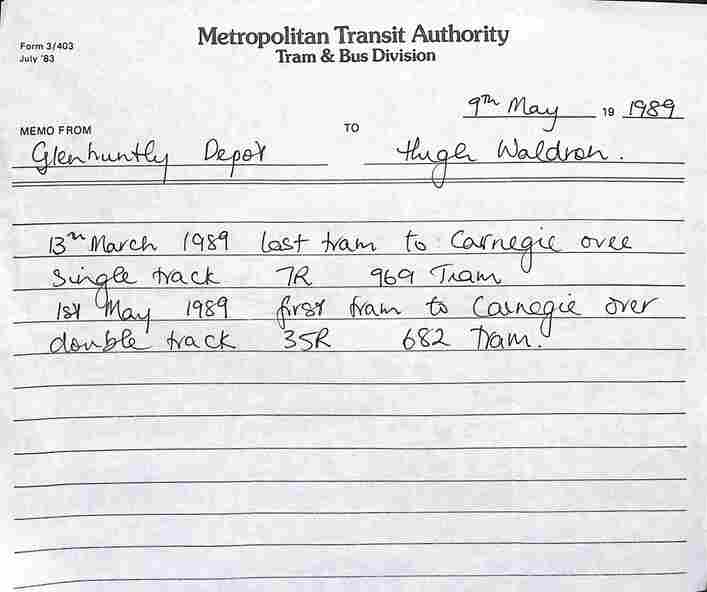 Form 3/403
July '83
Metropolitan Transit Authority
Tram & Bus Division
9th May 19 1989
MEMO FROM TO
Glenhuntly Depot Hugh Waldron.
13th March 1989 last tram to Carnegie over
single track 7R 969 Tram
1st May 1989 first tram to Carnegie over
double track 35R 682 Tram.